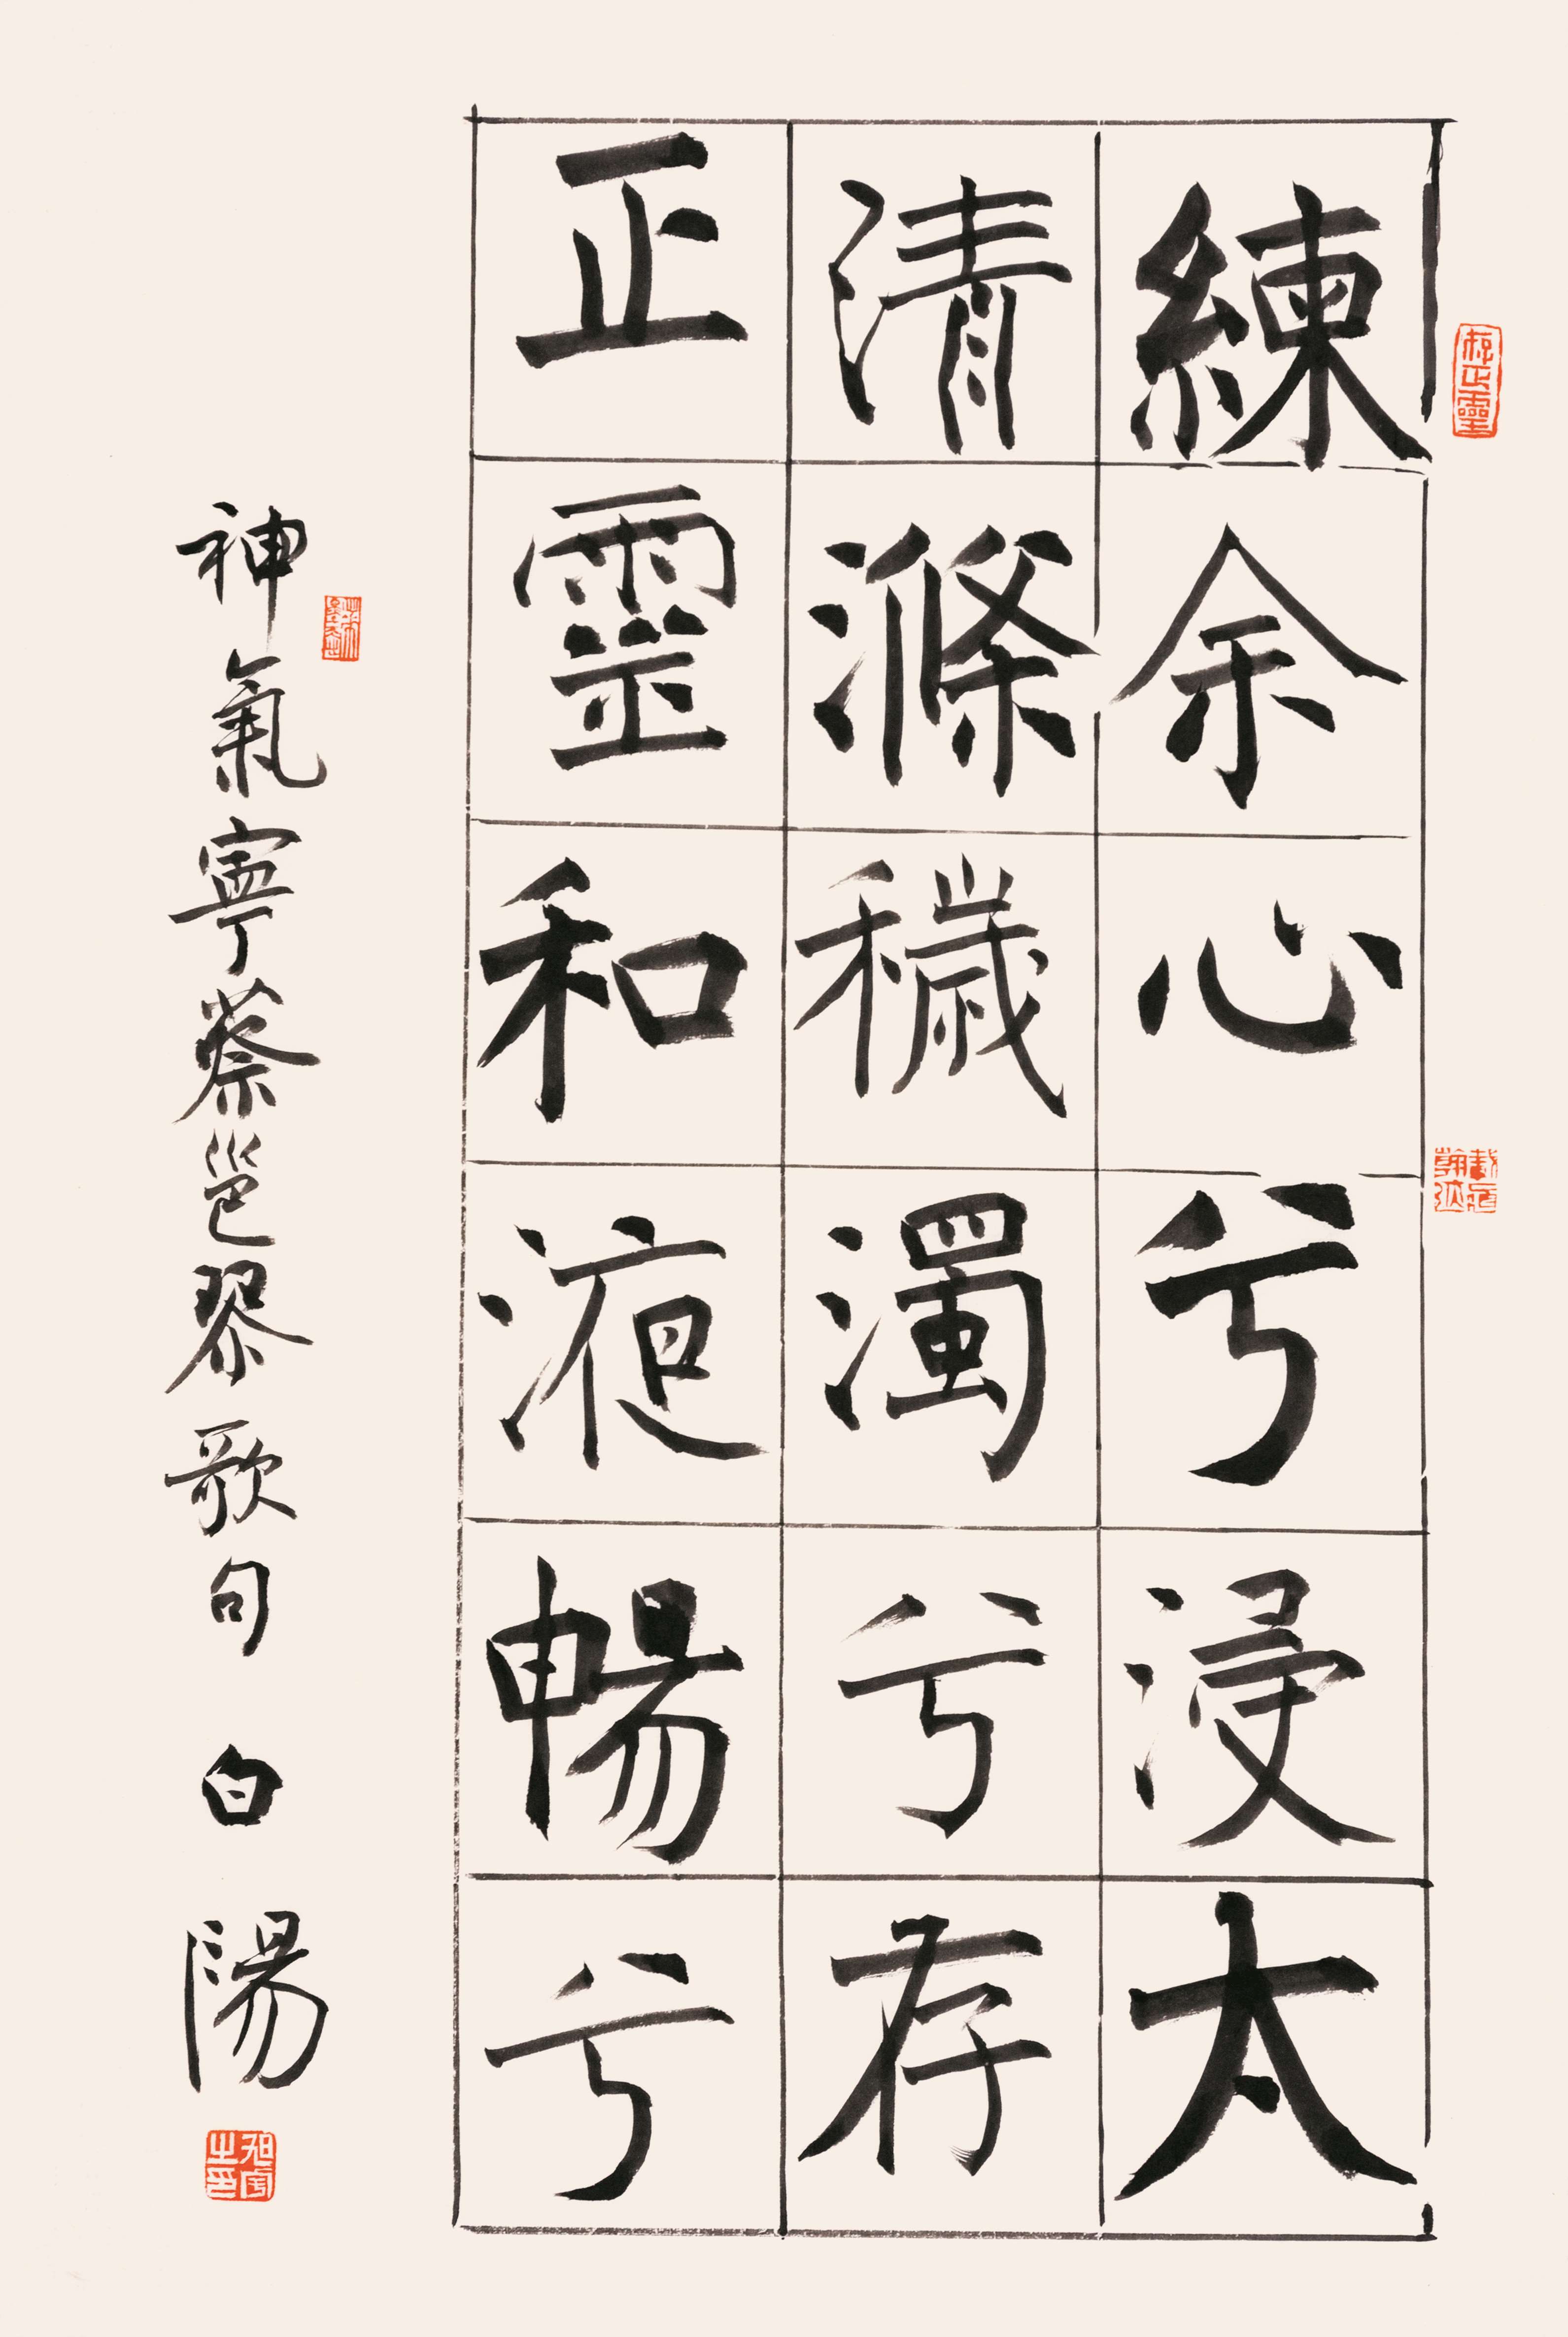 練余心兮浸太
清滌穢濁兮存
正靈和液暢兮
神氣寧蔡邕琴歌句 白陽
存正靈